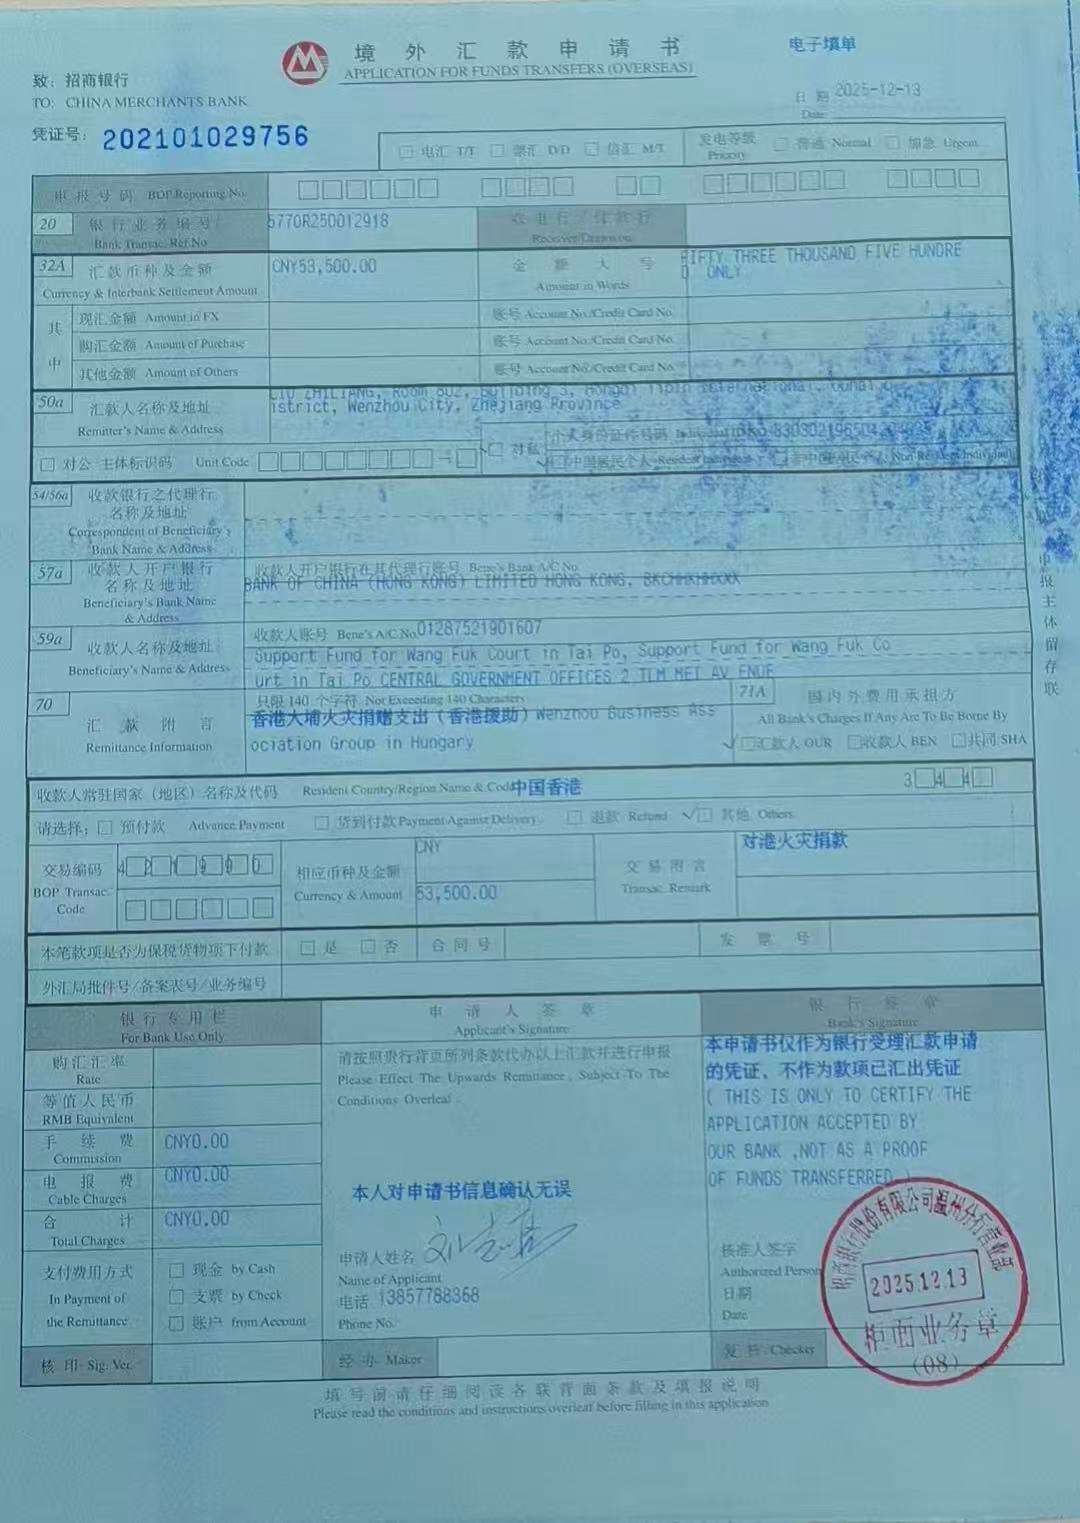 境外汇款申请书
APPLICATION FOR FUNDS TRANSFERS (OVERSEAS)
电子填单
致：招商银行
TO: CHINA MERCHANTS BANK
日期 2025-12-13
Date
凭证号：202101029756
电汇 T/T 票汇 D/D 信汇 M/T
发电等级 普通 Normal 加急 Urgent
Priority
申报号码 BOP Reporting No.
20 银行业务编号 5770R250012918 收电行/付款行
Bank Transac. Ref No Receiver/Drawn on
32A 汇款币种及金额 CNY53,500.00 金额大写 FIFTY THREE THOUSAND FIVE HUNDRE
Currency & Interbank Settlement Amount Amount in Words D ONLY
其中
现汇金额 Amount in FX 账号 Account No./Credit Card No.
购汇金额 Amount of Purchase 账号 Account No./Credit Card No.
其他金额 Amount of Others 账号 Account No./Credit Card No.
50a 汇款人名称及地址
Remitter's Name & Address
LIU ZHILIANG, Room 802, Building 3,
istrict, Wenzhou City, Zhejiang Province
对公 主体标识码 Unit Code
对私 个人身份证件号码
中国居民个人 Resident Individual 非中国居民个人 Non Resident Individual
54/56a 收款银行之代理行
名称及地址
Correspondent of Beneficiary's
Bank Name & Address
57a 收款人开户银行
名称及地址
Beneficiary's Bank Name
& Address
收款人开户银行在其代理行账号 Bene's Bank A/C No.
BANK OF CHINA (HONG KONG) LIMITED HONG KONG, BKCHHKHHXXX
59a 收款人名称及地址
Beneficiary's Name & Address
收款人账号 Bene's A/C No. 01287521901607
Support Fund for Wang Fuk Court in Tai Po, Support Fund for Wang Fuk Co
urt in Tai Po CENTRAL GOVERNMENT OFFICES 2 TLM MET AV ENUE
70 汇款附言
Remittance Information
只限 140 个字符 Not Exceeding 140 Characters
香港大埔火灾捐赠支出（香港援助）Wenzhou Business Ass
ociation Group in Hungary
71A 国内外费用承担方
All Bank's Charges If Any Are To Be Borne By
汇款人 OUR 收款人 BEN 共同 SHA
收款人常驻国家（地区）名称及代码 Resident Country/Region Name & Code 中国香港 344
请选择： 预付款 Advance Payment 货到付款 Payment Against Delivery 退款 Refund 其他 Others
交易编码
BOP Transac.
Code
相应币种及金额
Currency & Amount
CNY
53,500.00
交易附言
Transac. Remark
对港火灾捐款
本笔款项是否为保税货物项下付款 是 否 合同号 发票号
外汇局批件号/备案表号/业务编号
银行专用栏
For Bank Use Only
申请人签章
Applicant's Signature
银行签章
Bank's Signature
购汇汇率
Rate
等值人民币
RMB Equivalent
手续费 CNY0.00
Commission
电报费 CNY0.00
Cable Charges
合计 CNY0.00
Total Charges
支付费用方式
In Payment of
the Remittance
现金 by Cash
支票 by Check
账户 from Account
核印 Sig. Ver.
请按照贵行背页所列条款代办以上汇款并进行申报
Please Effect The Upwards Remittance, Subject To The
Conditions Overleaf.
本人对申请书信息确认无误
申请人姓名
Name of Applicant
电话 13857788368
Phone No.
经办 Maker
本申请书仅作为银行受理汇款申请
的凭证、不作为款项已汇出凭证
( THIS IS ONLY TO CERTIFY THE
APPLICATION ACCEPTED BY
OUR BANK ,NOT AS A PROOF
OF FUNDS TRANSFERRED )
核准人签字
Authorized Person
日期
Date
复核 Checker
招商银行股份有限公司温州分行营业部
2025.12.13
柜面业务章
(08)
申报主体留存联
填写前请仔细阅读各联背面条款及填报说明
Please read the conditions and instructions overleaf before filling in this application